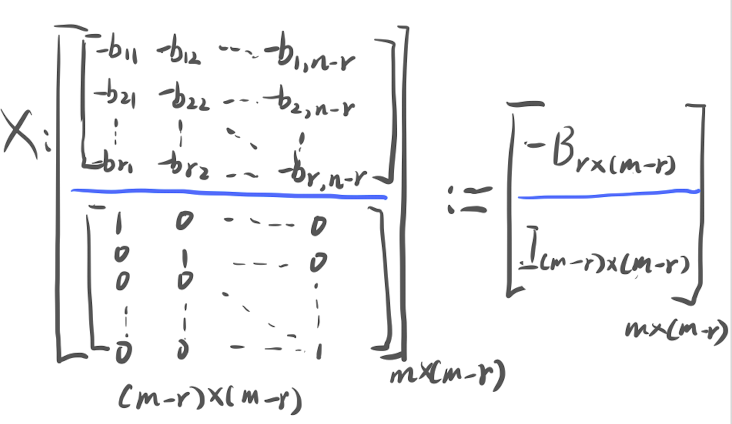 X:
-b11 -b12 ---- -b1,n-r
-b21 -b22 ---- -b2,n-r
-br1 -br2 -- -- -br,n-r
1 0 ----- 0
0 1 ---- 0
0 0
0 0 ---- 1
(m-r)×(m-r)
m×(m-r)
:=
-Br×(m-r)
I(m-r)×(m-r)
m×(m-r)